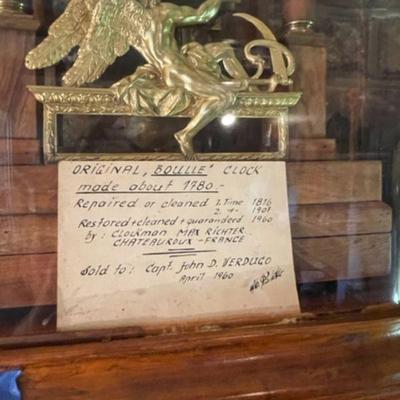 ORIGINAL „BOULLE" CLOCK
made about 1780.-
Repaired or cleaned 1. Time 1816
2. -"- 1909
Restored + cleaned + quaranderd 1960
by: CLOCKMAN MAX RICHTER
CHATEAUROUX - FRANCE
Sold to: Capt. John D. VERDUGO
April 1960